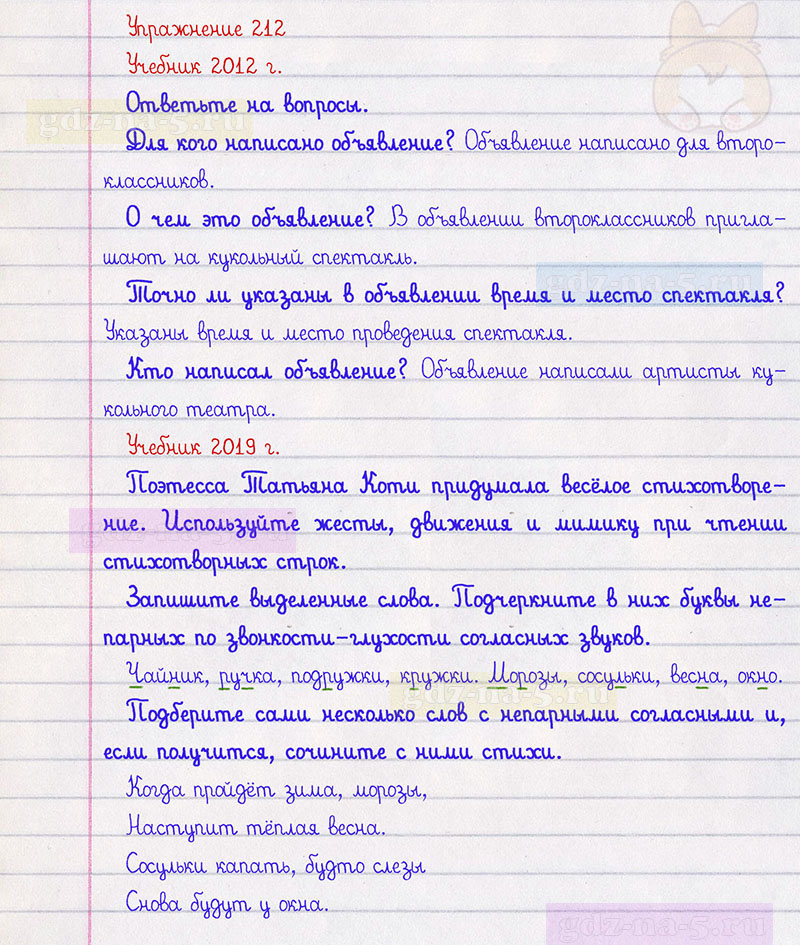 Упражнение 212
Учебник 2012 г.
Ответьте на вопросы.
gdz-na-5.ru
Для кого написано объявление? Объявление написано для второ-
классников.
О чем это объявление? В объявлении второклассников пригла-
шают на кукольный спектакль.
gdz-na-5.ru
Точно ли указаны в объявлении время и место спектакля?
Указаны время и место проведения спектакля.
Кто написал объявление? Объявление написали артисты ку-
кольного театра.
Учебник 2019 г.
Поэтесса Татьяна Коти придумала весёлое стихотворе-
ние. Используйте жесты, движения и мимику при чтении
gdz-na-5.ru
стихотворных строк.
Запишите выделенные слова. Подчеркните в них буквы не-
парных по звонкости-глухости согласных звуков.
Чайник, ручка, подружки, кружки. Морозы, сосульки, весна, окно.
gdz-na-5.ru
Подберите сами несколько слов с непарными согласными и,
если получится, сочините с ними стихи.
Когда пройдёт зима, морозы,
Наступит тёплая весна.
Сосульки капать, будто слезы
Снова будут у окна.
gdz-na-5.ru